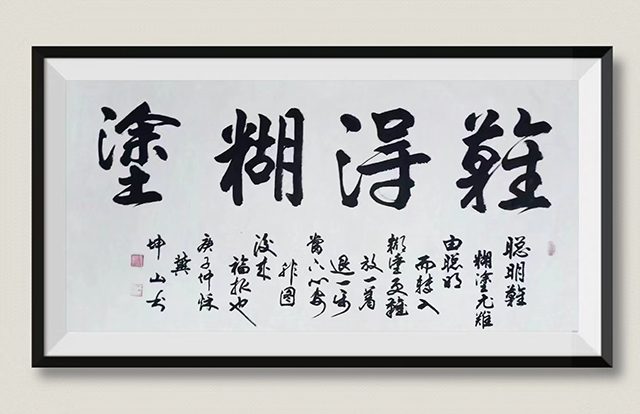 難得糊塗
聪明難
糊塗尤难
由聪明
而转入
糊塗更難
放一着
退一步
當下心安
非图
後来
福报也
庚子仲秋
冀
坤山书